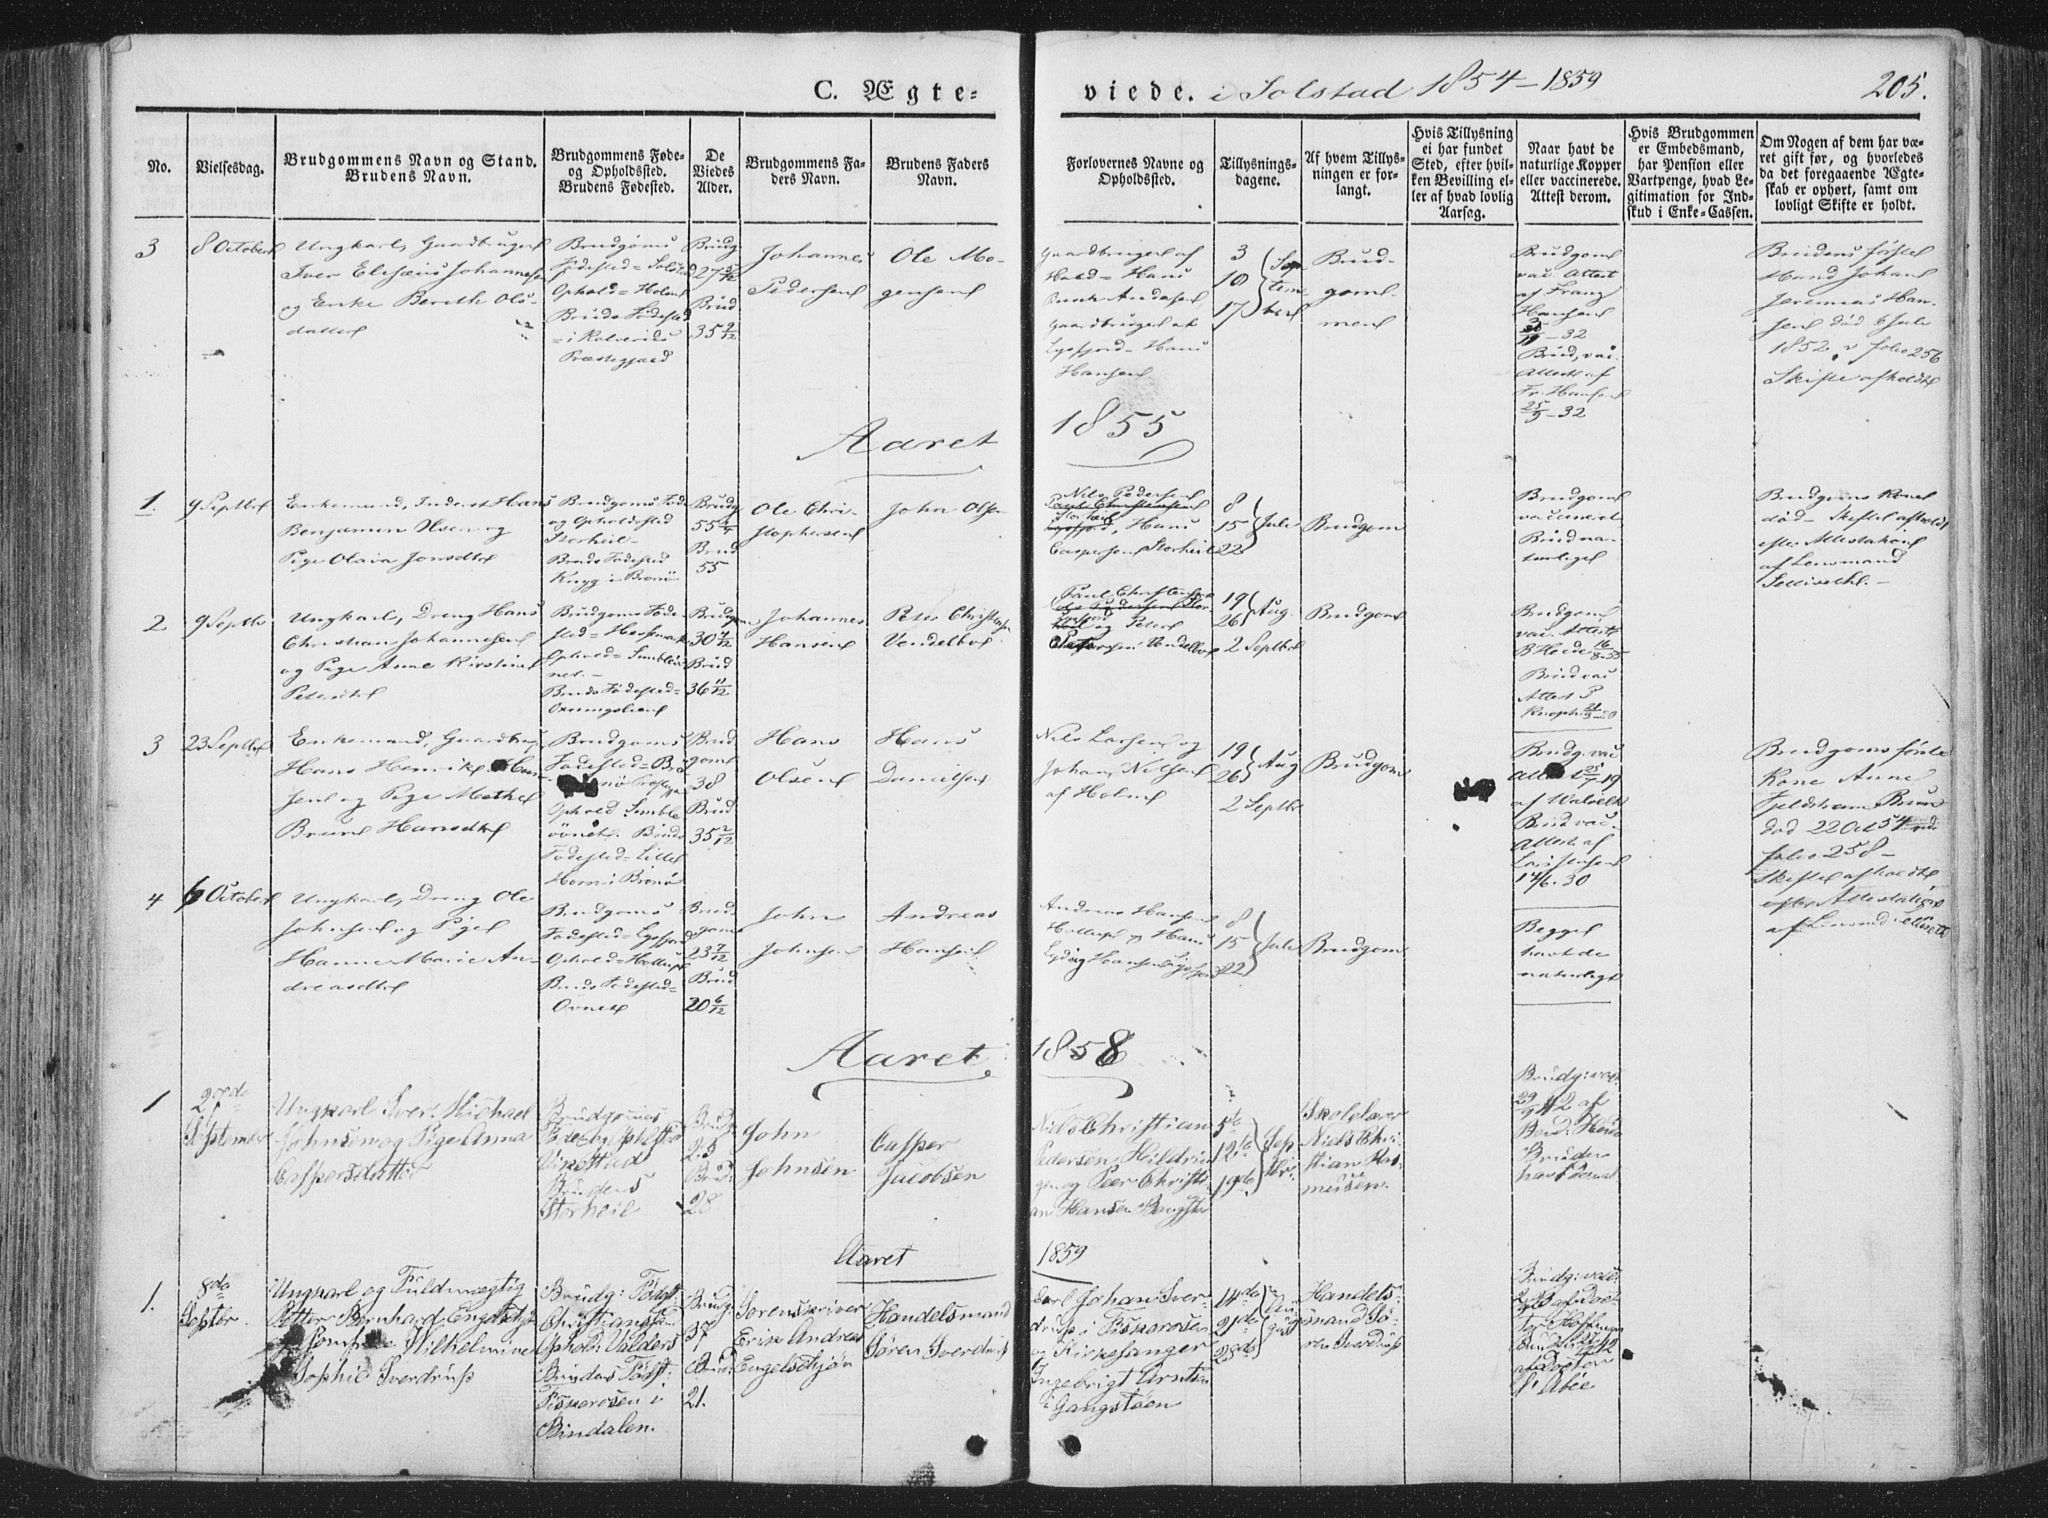 C. Ægte-
viede. i Solstad 1854-1859
205.
No.
Vielsesdag.
Brudgommens Navn og Stand.
Brudens Navn.
Brudgommens Føde-
og Opholdssted.
Brudens Fødested.
De
Viedes
Alder.
Brudgommens Fa-
ders Navn.
Brudens Faders
Navn.
Forlovernes Navne og
Opholdssted.
Tillysnings-
dagene.
Af hvem Tillys-
ningen er for-
langt.
Hvis Tillysning
ei har fundet
Sted, efter hvil-
ken Bevilling el-
ler af hvad lovlig
Aarsag.
Naar havt de
naturlige Kopper
eller vaccinerede.
Attest derom.
Hvis Brudgommen
er Embedsmand,
har Pension eller
Vartpenge, hvad Le-
gitimation for Ind-
skud i Enke-Cassen.
Om Nogen af dem har væ-
ret gift før, og hvorledes
da det foregaaende Ægte-
skab er ophørt, samt om
lovligt Skifte er holdt.
3
8 October
Ungkarl, Gaardbruger
Iver Elesæus Johannesen
og Enke Bereth Ols-
datter
Brudgoms
Fødested = Solstad
Ophold = Holm
Bruds Fødested
= i Kolvereids
Præstegjæld
Brudg
27 5/12
Brud
35 9/12
Johannes
Pedersen
Ole Mo-
gensen
Gaardbruger af
Hald = Hans
Andersen
Gaardbruger af
Lysfjord = Hans
Hansen
3
10
17
Sep
tem
ber
Brud-
gom-
men
Brudgom
vac. Attest
af Franz
Hansen
32
Brud, vac.
Attest af
Fr. Hansen
25/9 - 32
Brudens første
Mand Johan
Jeremias Han-
sen død 6 Juli
1852 v folio 256
Skifte afholdt
Aaret
1855
1.
9 Septbr
Enkemand, Inderst Hans
Benjamin Olsen og
Pige Olava Jonsdtr
Brudgoms Føde
og Opholdsted
Storheil -
Bruds Fødested
i Brønø
Brudg
55 3/4
Brud
55
Ole Chri-
stophersen
John Olsen
Nils Pedersen
Paul Christensen
Storheil
Hans
Caspersen Storheil
8
15
22
Jule
Brudgom
Brudgom
vaccineret
Brud na-
turligt
Brudgoms Kone
død - Skifte afholdt
efter Attestation
af Lensmand
Selliseth. -
2
9 Septbr
Ungkarl, Dreng Hans
Christian Johannesen
og Pige Anne Kirstine
Petersdtr
Brudgoms Føde-
sted =
Ophold =
Bruds Fødested =
Brudgom
30 4/12
Brud
36 11/12
Johannes
Hansen
Peter Christensen
Vendelboe
Paul Christensen
og Peter
Vendelboe
19
26
Aug.
2 Septbr
Brudgom
Brudgom
vac. Attest
16/8 35
Brud vac
Attest P
3
23 Septbr
Enkemand, Gaardbruger
Hans Henrik Han-
sen og Pige Mette
Bruun Hansdtr
Brudgoms
Fødested = Brø
nø Præstegj
Ophold Simle
øvnet. Bruds
Fødested = Lille
Horn i Brønø
Brud
gom
38
Brud
35 2/12
Hans
Olsen
Hans
Danielsen
Nils Larsen og
Johan Nilsen
af Holm
19
26
Aug
2 Septbr
Brudgom
Brudg. vac
Attest 25/7 19
af
Brud vac.
Attest af
17/6 30
Brudgoms første
Kone Anne
Fjeldsham Bruun
død 22 Oct 54
folio 258 -
Skifte afholdt
efter Attestation
af Lensmand Sellisett
4
6 October
Ungkarl, Dreng Ole
Johnsen og Pige
Hanne Marie An-
dreasdtr
Brudgoms
Fødested = Lysfjord
Ophold = Hollup
Bruds Fødested =
Øvnet
Brud
gom
23 7/12
Brud
20 6/12
John
Johnsen
Andreas
Hansen
Andreas Hansen
Hollup og Hans
Ludvig Hansen Lysfjord
8
15
22
Jule
Brudgom
Begge
havt de
naturligt
Aaret
1858
1
27de
September
Ungkarl Iver Michael
Johnsen og Pige Anna
Caspersdatter
Brudgomes
Føde og Opholdst
Vikestad
Brudens
Storheil
Brudg
25
Brud
28
John
Johnsen
Casper
Jacobsen
Niels Christian
Pedersen, Hildrin
gen og Peer Christi-
an Hansen Bangstad
5te
12te
19de
Sep
tbr.
Skolelærer
Niels Chri-
stian Ras-
musen.
Brudg: vac
29/9 42 af
Bruden
havt
Aaret
1859
1.
8de
Septbr.
Ungkarl og Fuldmægtig
Petter Bernhard Engelskjøn
og Jomfrue Vilhelmine
Sophie Sverdrup
Brudg: Fødst
Christianssund
Ophold: Valders
Brudens Fødst:
Fiskerosen i
Bindalen.
Brudg
37
Brud:
21.
Sorenskriver
Erik Andreas
Engelskjøn
Handelsmand
Søren Sverdrup
Carl Johan Sver-
drup i Fiskerosen
og Kirkesanger
Ingebrigt Arntsen
i Gangstøen
14de
21de
28de
Au
gust
Handels-
mand Sø-
ren Sverdrup
Brudg: vac:
af Doc-
tor Hoffmann
af Doctor